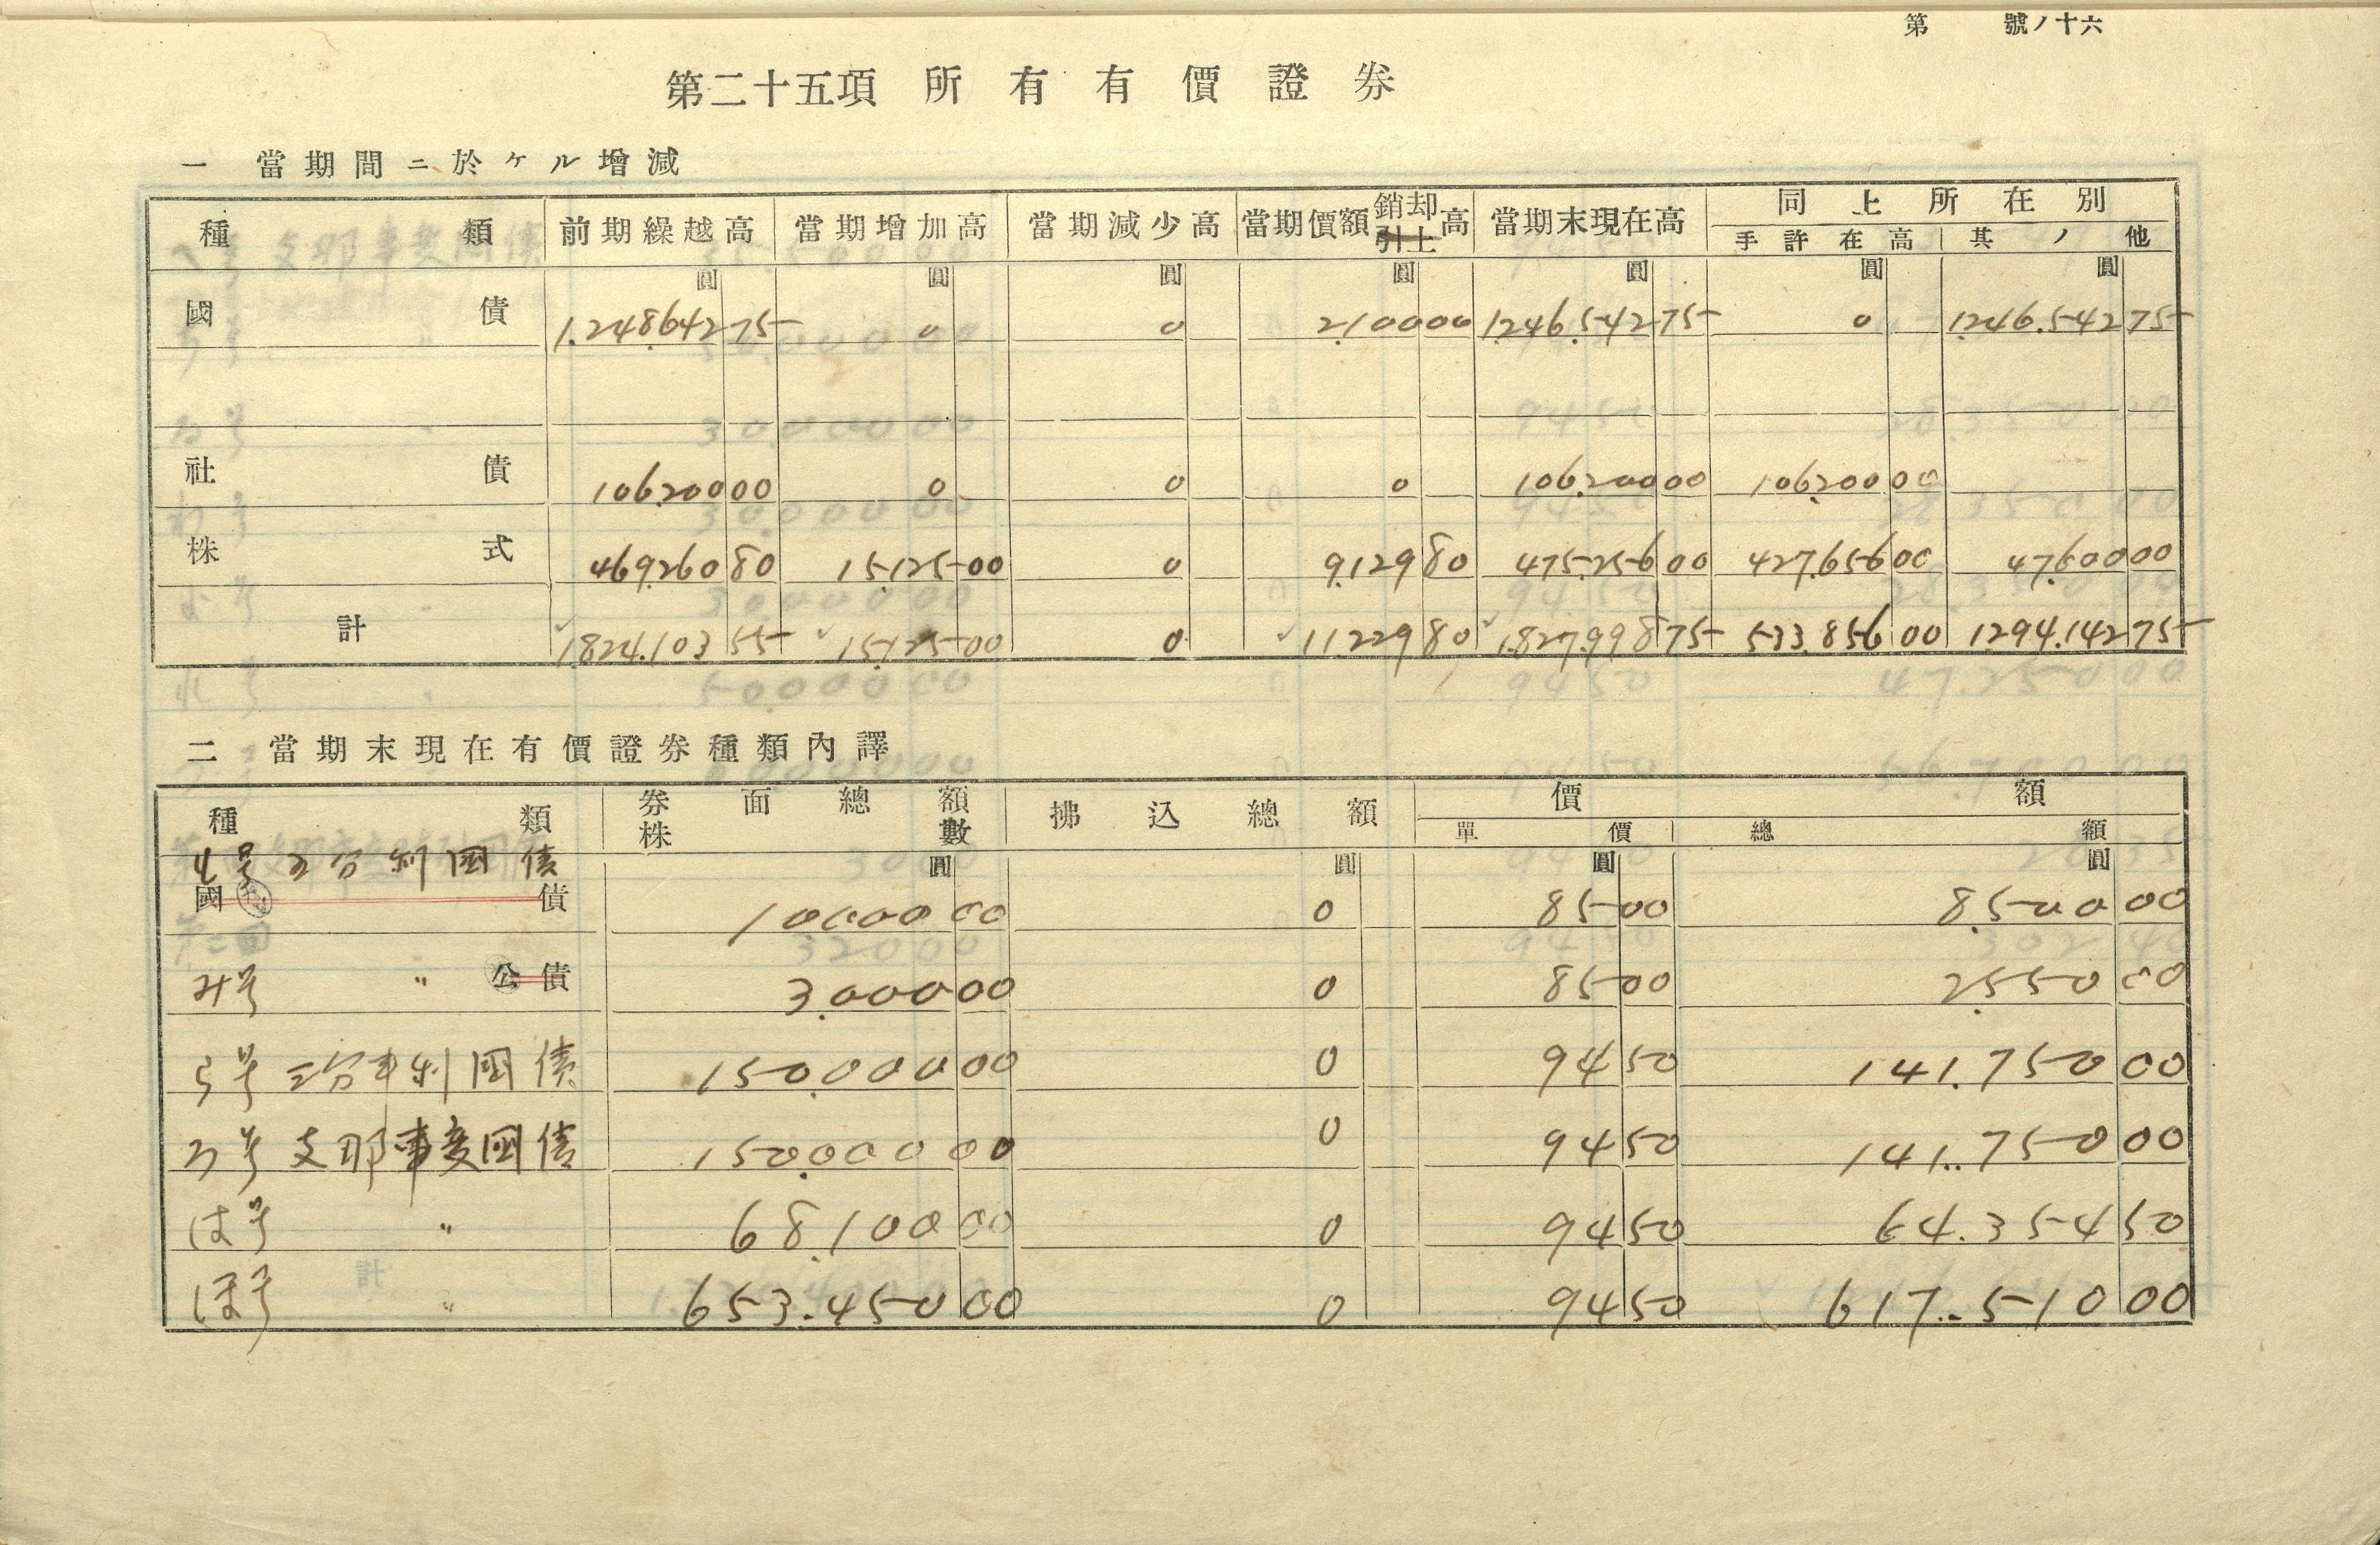 第 號ノ十六
第二十五項 所有有價證券
一 當期間ニ於ケル增減
種類 前期繰越高 當期增加高 當期減少高 當期價額銷却引上高 當期末現在高 同上所在別
手許在高 其ノ他
圓 圓 圓 圓 圓 圓 圓
國債 1.248.642 75 0 0 2.100 00 1.246.542 75 0 1.246.542 75
社債 106.200 00 0 0 0 106.200 00 106.200 00
株式 469.260 80 15.125 00 0 9.129 80 475.256 00 427.656 00 47.600 00
計 1.824.103 55 15.125 00 0 11.229 80 1.827.998 75 533.856 00 1.294.142 75
二 當期末現在有價證券種類內譯
種類 券面總額 株數 拂込總額 價額
單價 總額
圓 圓 圓 圓
も号五分利国債
國債 10.000 00 0 85 00 8.500 00
み号 〃 公債 3.000 00 0 85 00 2.550 00
う号三分半利國債 150.000 00 0 94 50 141.750 00
ろ号支那事変國債 150.000 00 0 94 50 141.750 00
は号 〃 68.100 00 0 94 50 64.354 50
ほ号 〃 653.450 00 0 94 50 617.510 00